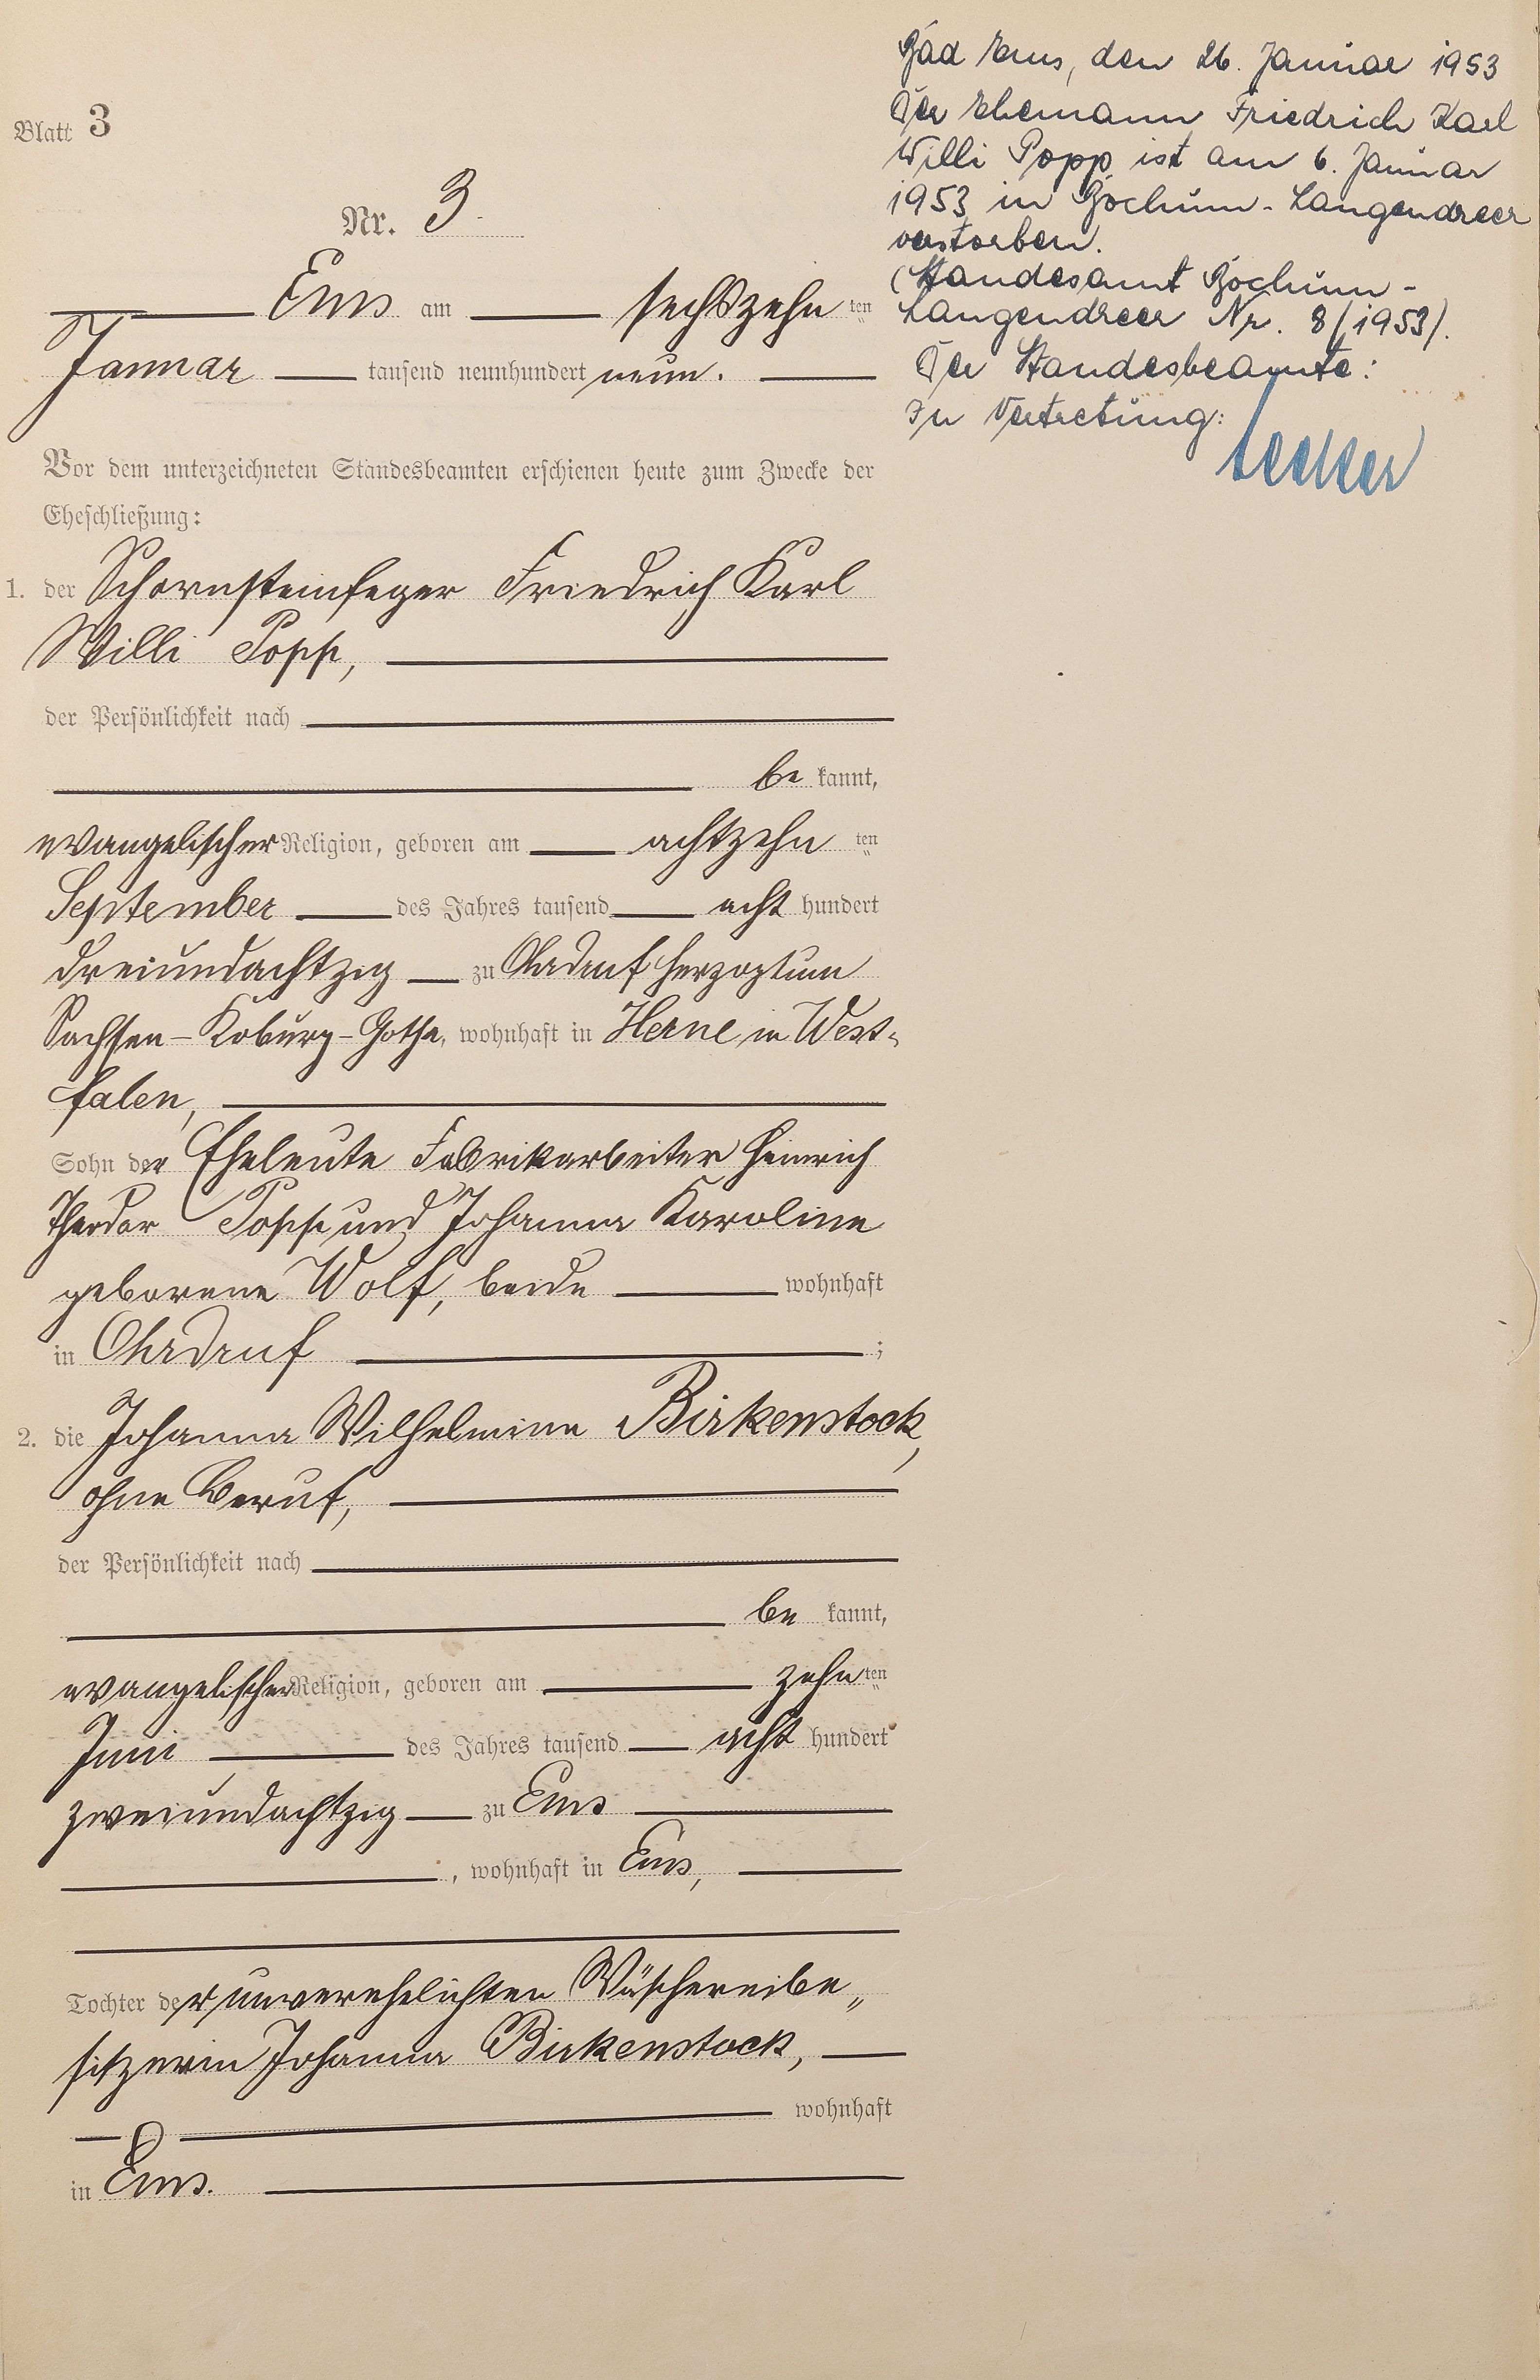 Blatt 3
Nr. 3.
Ems am sechszehn ten
Januar tausend neunhundert neun.
Vor dem unterzeichneten Standesbeamten erschienen heute zum Zwecke der
Eheschließung:
1. der Schornsteinfeger Friedrich Karl
Willi Popp,
der Persönlichkeit nach
be kannt,
evangelischer Religion, geboren am achtzehn ten
September des Jahres tausend acht hundert
dreiundachtzig zu Ohrdruf Herzogtum
Sachsen-Koburg-Gotha, wohnhaft in Herne in West-
falen,
Sohn der Eheleute Fabrikarbeiter Heinrich
Theodor Popp und Johanna Karoline
geborene Wolf, beide wohnhaft
in Ohrdruf ;
2. die Johanna Wilhelmine Birkenstock,
ohne Beruf,
der Persönlichkeit nach
be kannt,
evangelischer Religion, geboren am zehn ten
Juni des Jahres tausend acht hundert
zweiundachtzig zu Ems
, wohnhaft in Ems,
Tochter der unverehelichten Wäschereibe„
sitzerin Johanna Birkenstock,
wohnhaft
in Ems.
Bad Ems, den 26. Januar 1953
Der Ehemann Friedrich Karl
Willi Popp ist am 6. Januar
1953 in Bochum-Langendreer
verstorben.
(Standesamt Bochum-
Langendreer Nr. 8/1953).
Der Standesbeamte:
In Vertretung: